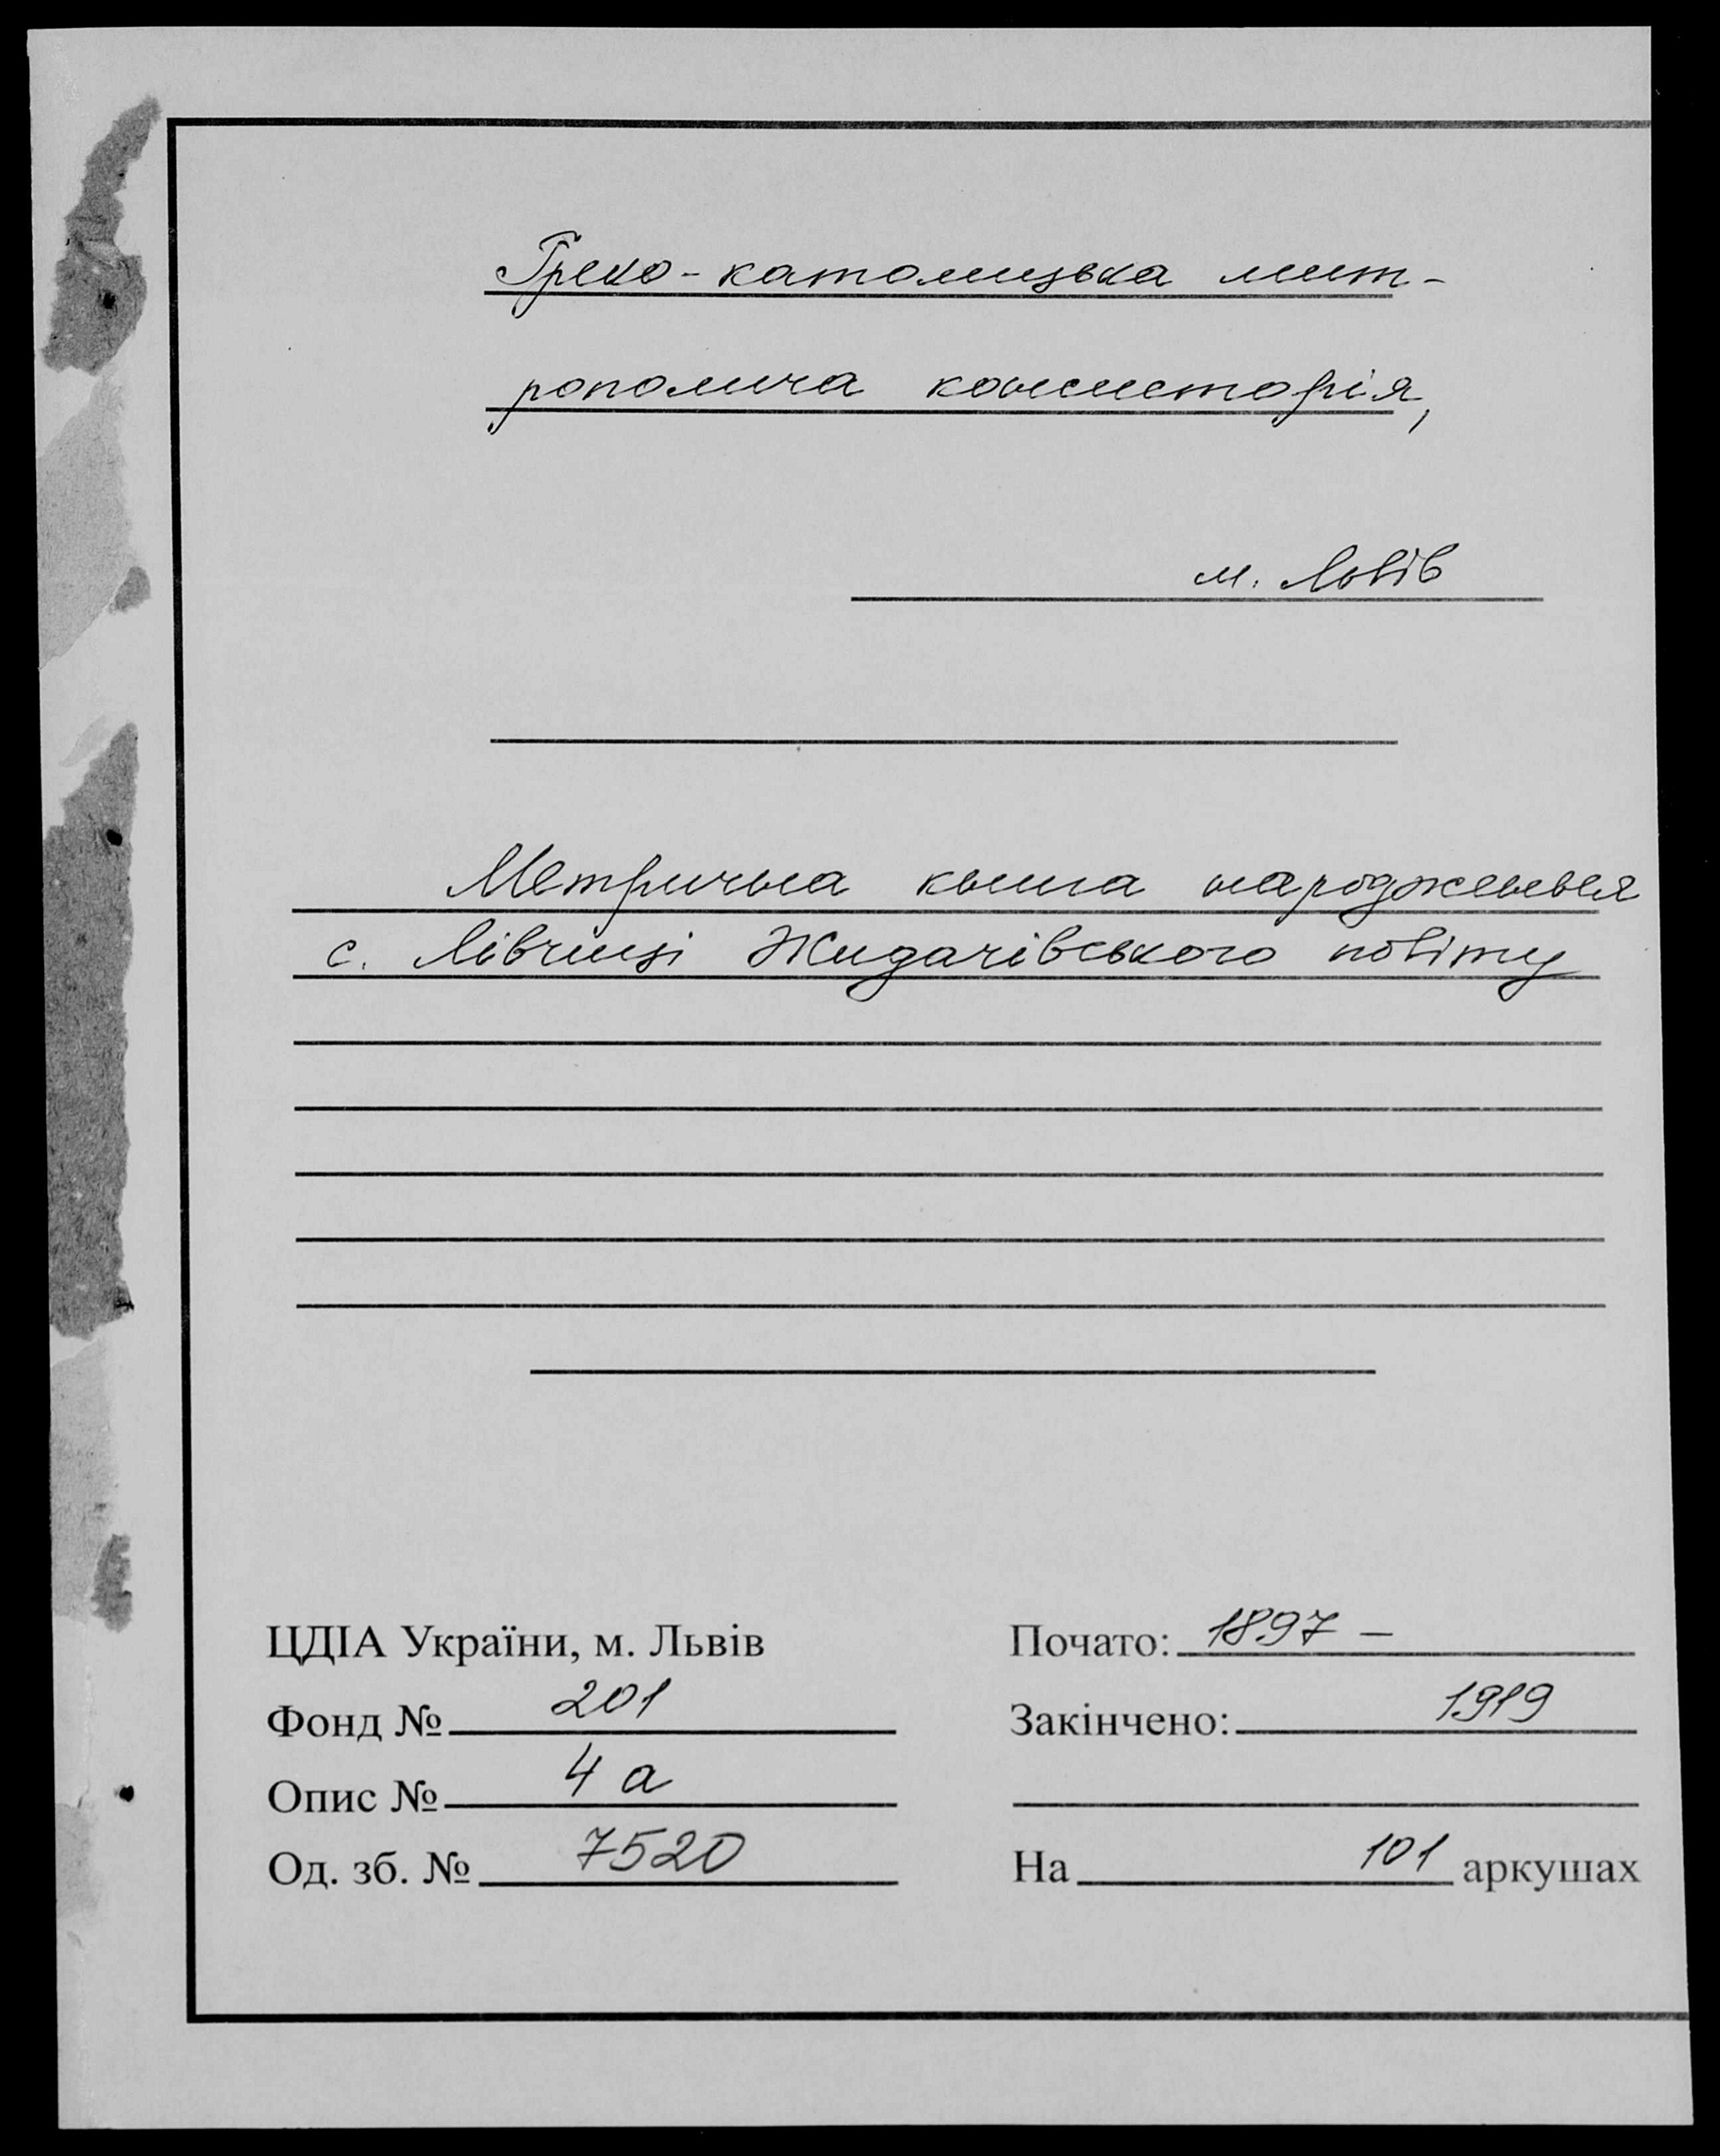 Греко-католицька мит-
рополича консисторія,
м. Львів
Метрична книга народження
с. Лівчиці Жидачівського повіту
ЦДІА України, м. Львів
Фонд № 201
Опис № 4 а
Од. зб. № 7520
Почато: 1897 –
Закінчено: 1919
На 101 аркушах